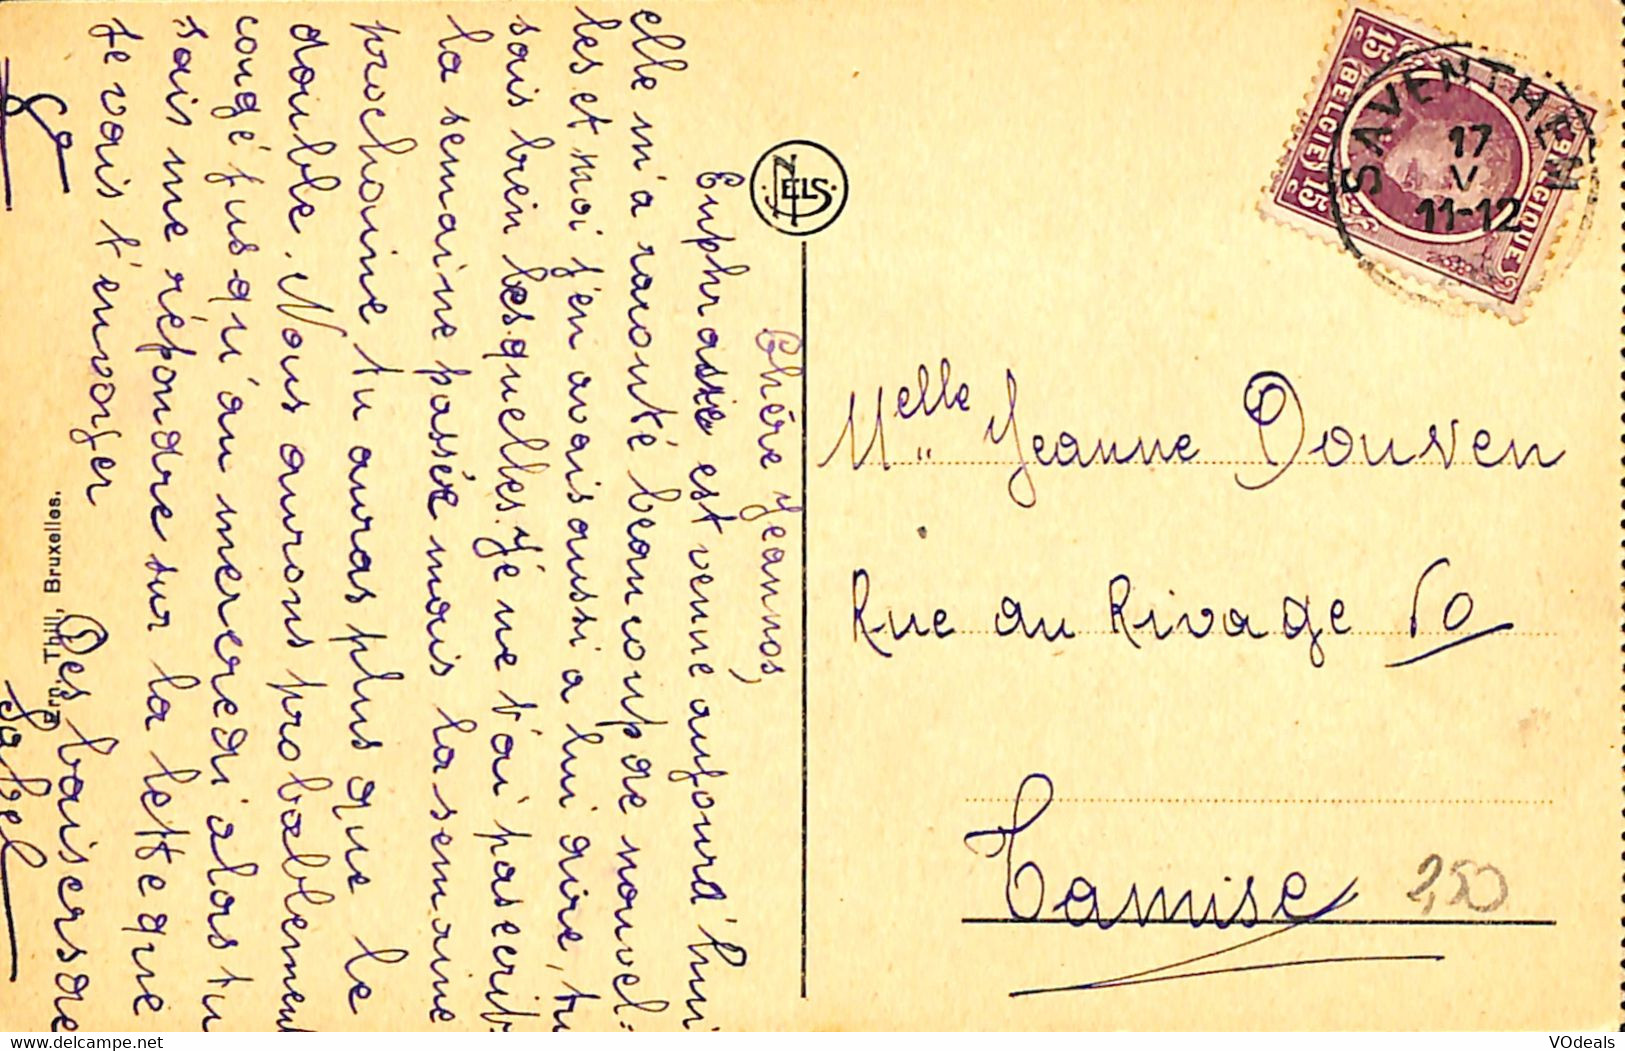 Chère Jeannos,
Euphrasie est venue aujourd'hui
elle m'a raconté beaucoup de nouvel=
les et moi j'en avais aussi a lui dire, tu
sais bien lesquelles. Je ne t'ai pas ecrit
la semaine passée mais la semaine
prochaine tu auras plus que le
double. Nous aurons probablement
congé jusqu'au mercredi alors tu
sais me répondre sur la lettre que
je vais t'envoyer
Des baisers de
NELS
Ern. Thill, Bruxelles.
15 c BELGIE 15 c
BELGIQUE
SAVENTHEM
17
V
11-12
Melle Jeanne Douven
Rue au Rivage 10
Tamise
2,50
VOdeals
delcampe.net